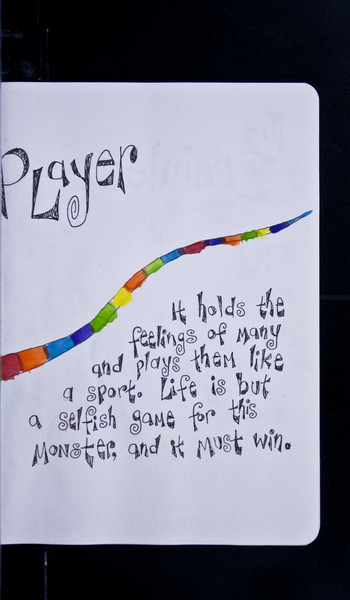 Player
It holds the
feelings of many
and plays them like
a sport. Life is but
a selfish game for this
Monster, and it must win.